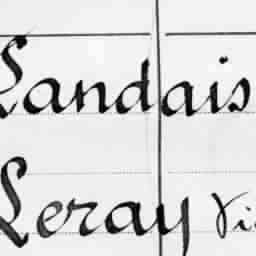 Landais
Leray Vi